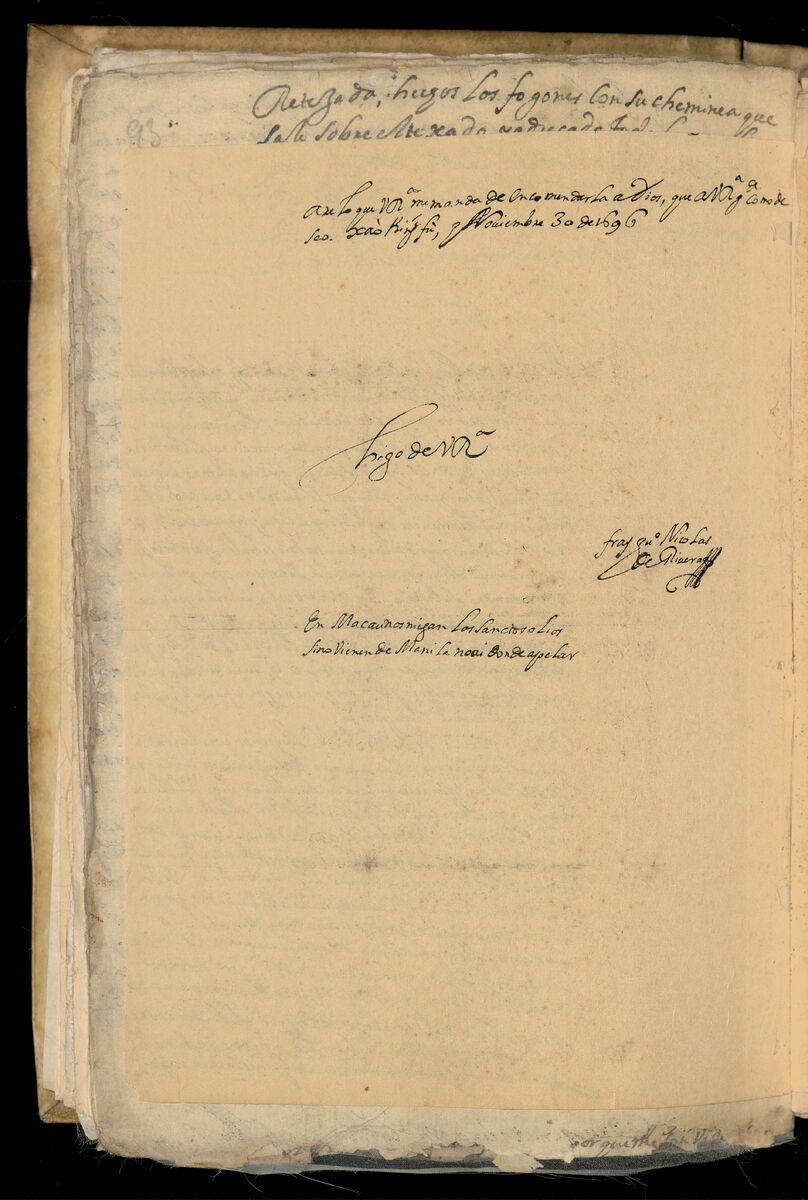 93
Retezada, hiezos los fogones con su cheminea que
sale sobre el texado
are lo que VRª me manda de encomendarla a Dios, que a VRª gᵈᵉ como de
seo. Xáo Kiṅg fù, y Noviembre 30 de 1696
hijo de VRª
fray Juº Nicolas
de Rivera
En Macau nos nigan los sanctos olios
sino vienen de Manila no ai donde apelar
porque